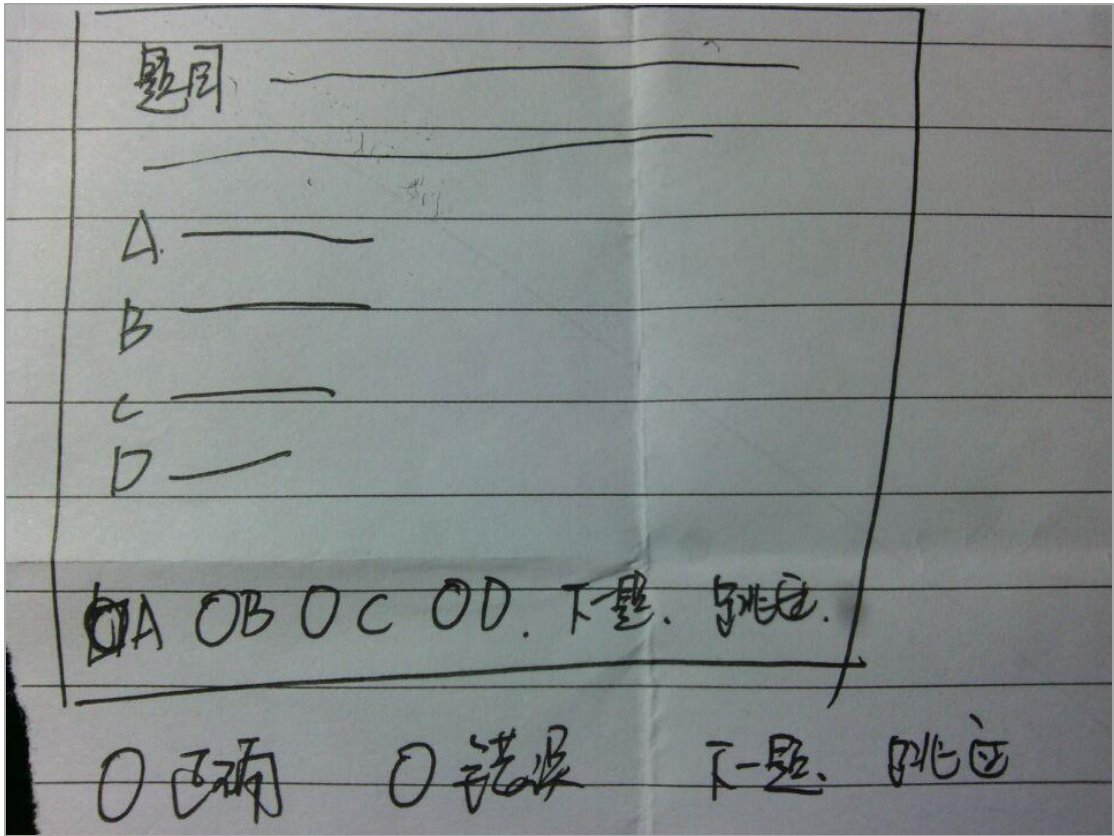 题目
A.
B
C
D
A OB OC OD. 下一题. 跳过.
O 正确 O 错误 下一题、跳过